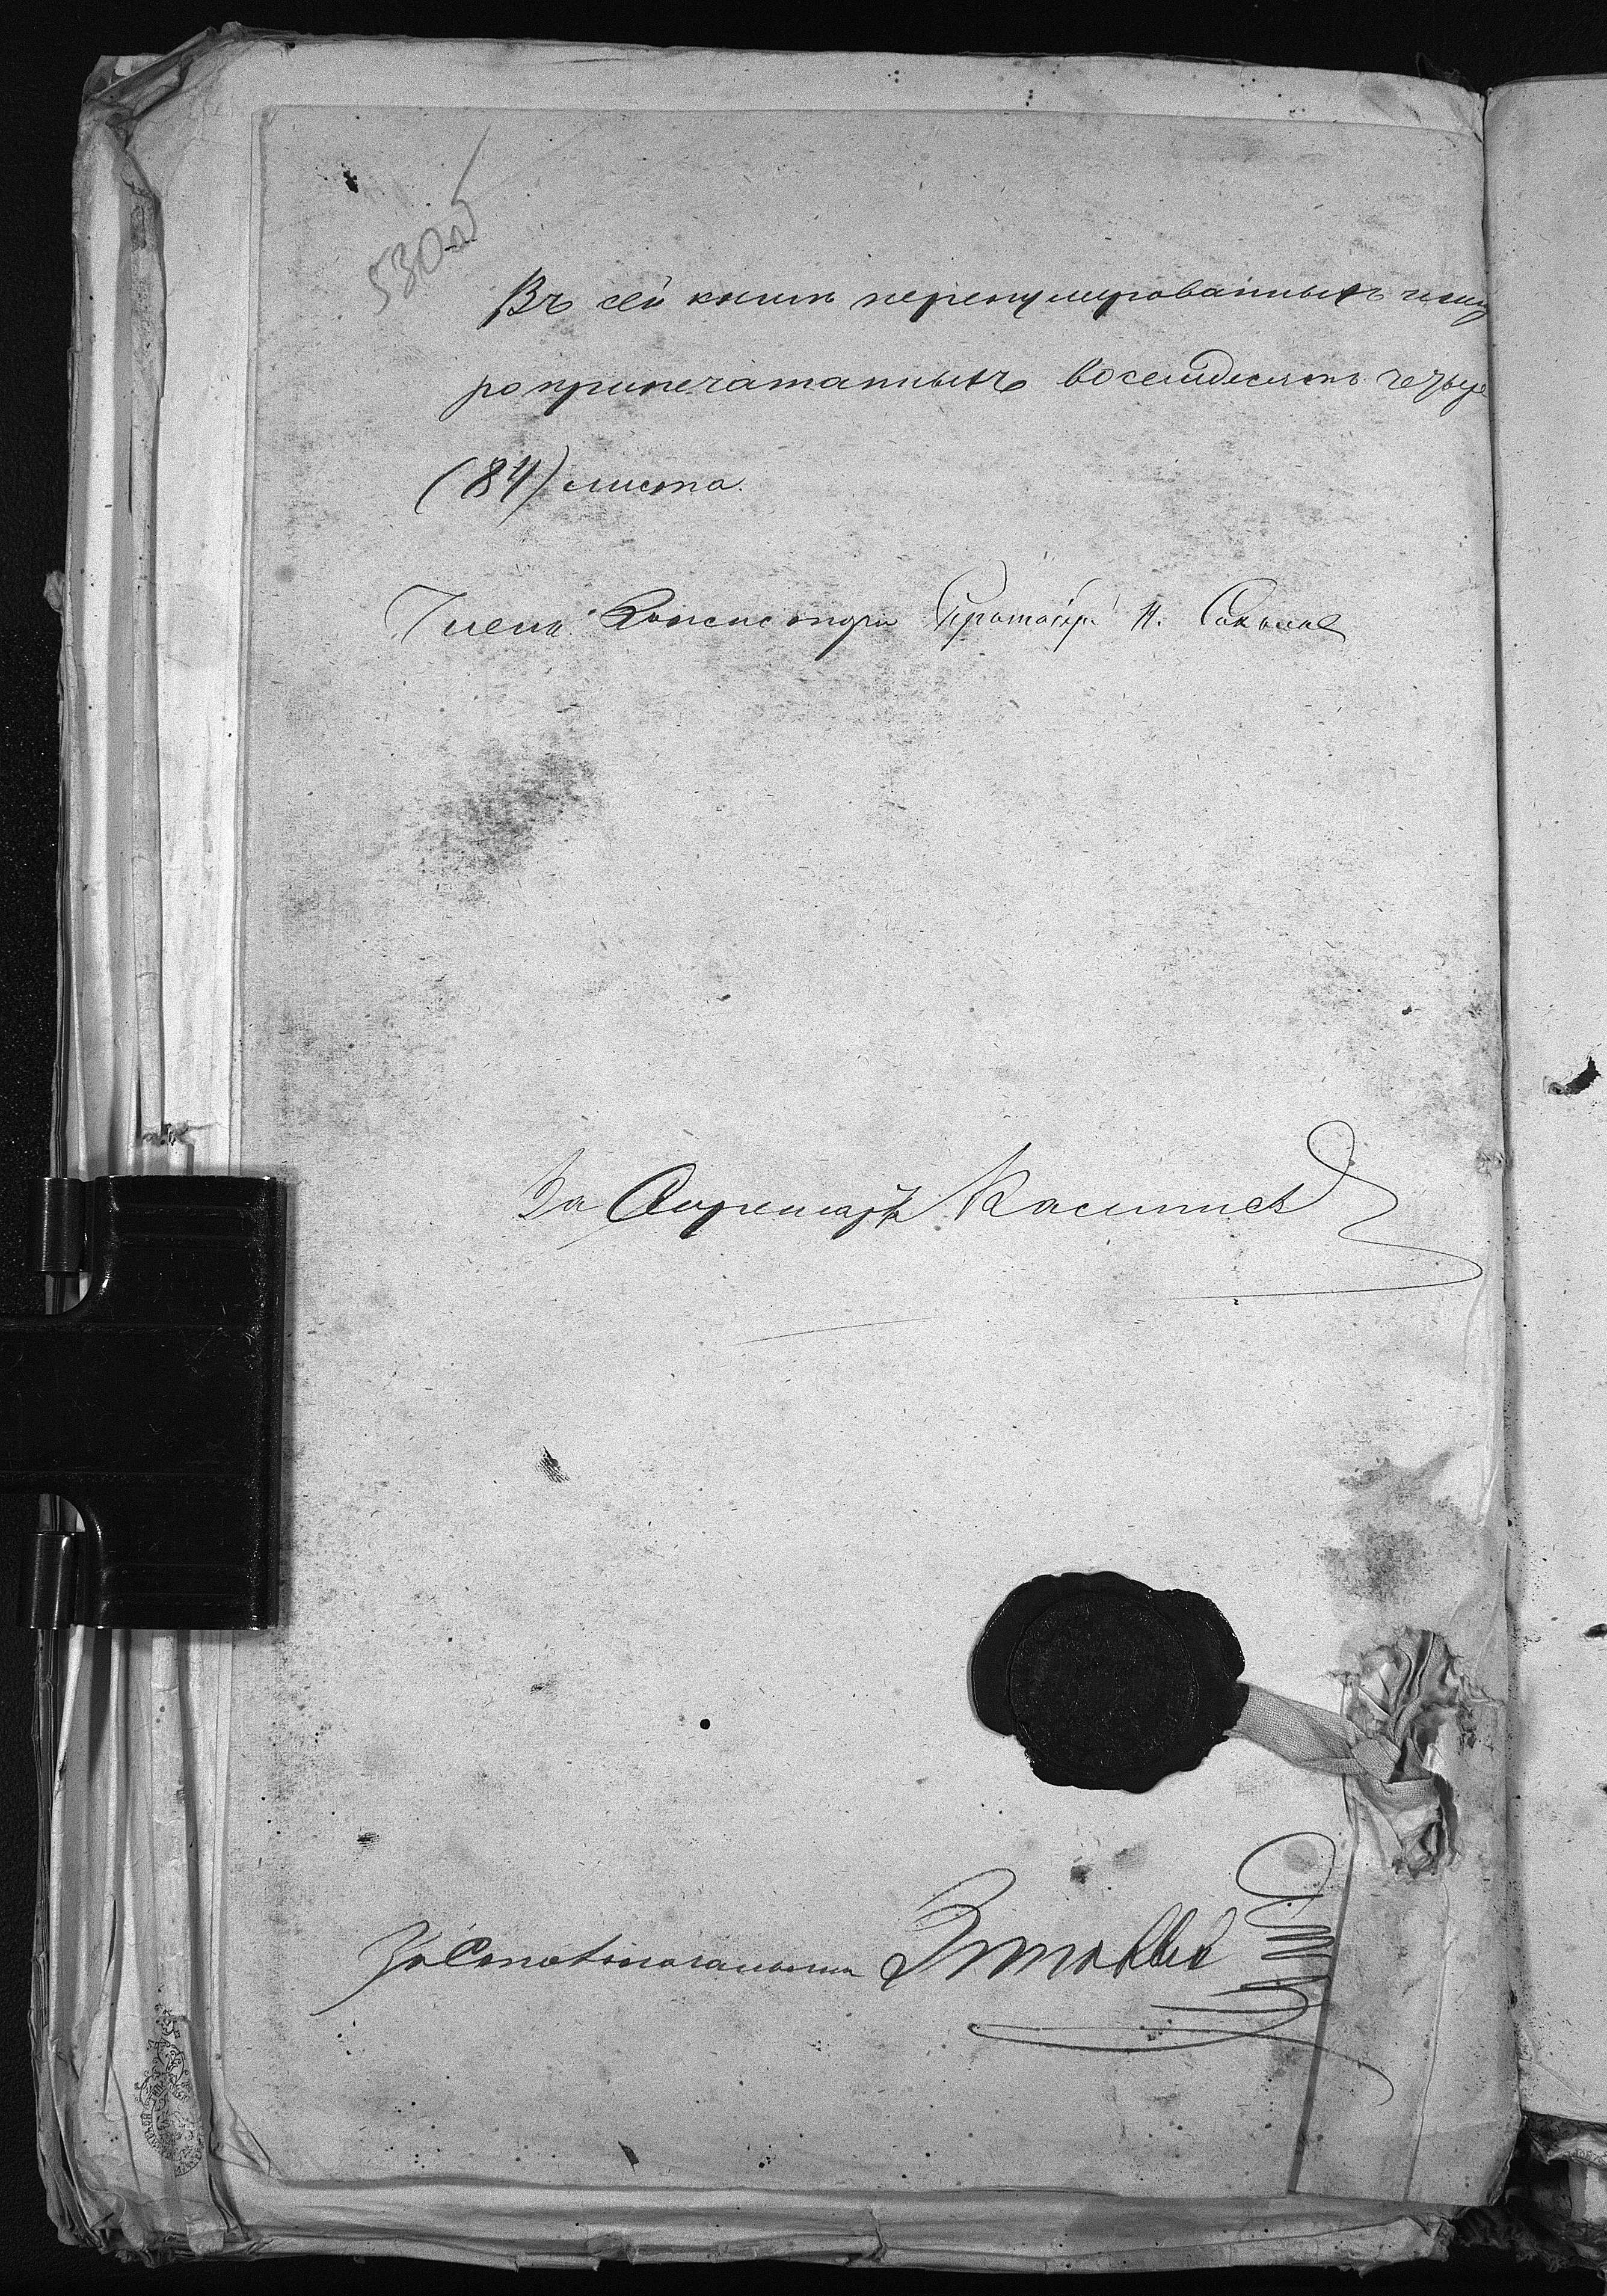 530 об
Въ сей книгѣ перенумерованныхъ и шну
роприпечатанныхъ восемдесятъ четыре
(84) листа.
Членъ Консисторіи Протоіер. Н. Соколовъ
За Секретаря
За Столоначальника